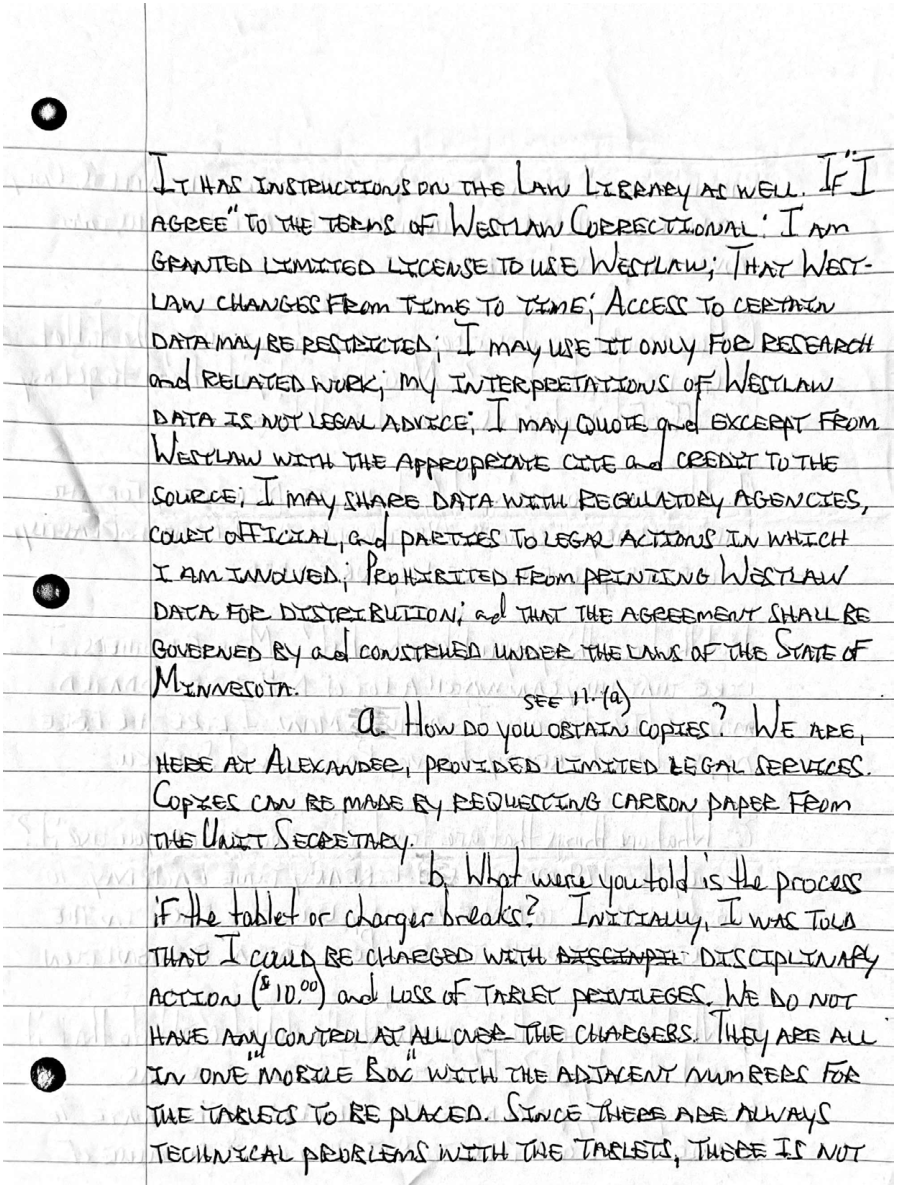 It has instructions on the Law Library as well. If "I
agree" to the terms of Westlaw Correctional: I am
granted limited license to use Westlaw; that West-
law changes from time to time; access to certain
data may be restricted; I may use it only for research
and related work; my interpretations of Westlaw
data is not legal advice; I may quote and excerpt from
Westlaw with the appropriate cite and credit to the
source; I may share data with regulatory agencies,
court official, and parties to legal actions in which
I am involved; prohibited from printing Westlaw
data for distribution; and that the agreement shall be
governed by and construed under the laws of the State of
Minnesota.
see 11. (a)
a. How do you obtain copies? We are,
here at Alexander, provided limited legal services.
Copies can be made by requesting carbon paper from
the Unit Secretary.
b. What were you told is the process
if the tablet or charger breaks? Initially, I was told
that I could be charged with disciplinary
action ($10.00) and loss of tablet privileges. We do not
have any control at all over the chargers. They are all
in one "mobile box" with the adjacent numbers for
the tablets to be placed. Since there are always
technical problems with the tablets, there is not